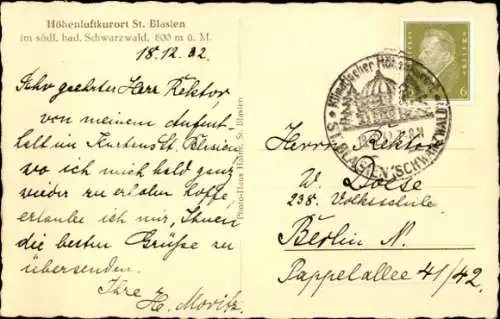 Höhenluftkurort St. Blasien
im südl. bad. Schwarzwald, 800 m ü. M.
18.12.32
Sehr geehrter Herr Rektor
von meinem Aufent-
halt im Kurhaus St. Blasien,
wo ich mich bald ganz
wieder zu erholen hoffe,
erlaube ich mir, Ihnen
die besten Grüße zu
übersenden.
Ihre H. Moritz.
Photo-Haus Hofer, St. Blasien
6
Klimatischer
ST. BLASIEN (SCHWARZWALD)
Herrn Rektor
W. Bolse
238. Volksschule
Berlin N.
Pappelallee 41/42.